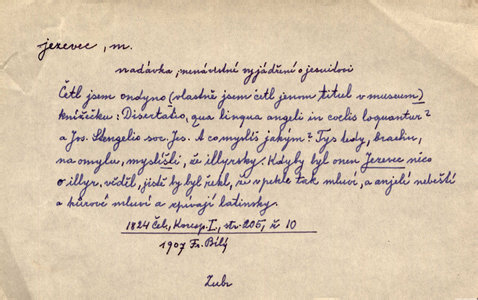 jezevec, m.
nadávka, nenávistné vyjádření o jesuitovi
Četl jsem ondyno (vlastně jsem četl jenom titul v museum)
knížečku: Disertatio, qua lingua angeli in coelis loquantur?
a Jos. Stengelio soc. Jes. A co myslíš jakým? Tys tedy, brachu,
na omylu, myslíš-li, že illyrsky. Kdyby byl onen Jezevec něco
o illyr. věděl, jistě by byl řekl, že v pekle tak mluví, a anjelé nebeští
a kůrové mluví a zpívají latinsky.
1824 Čel., Koresp. I., str. 205, č. 10
1907 Fr. Bílý
Zubr